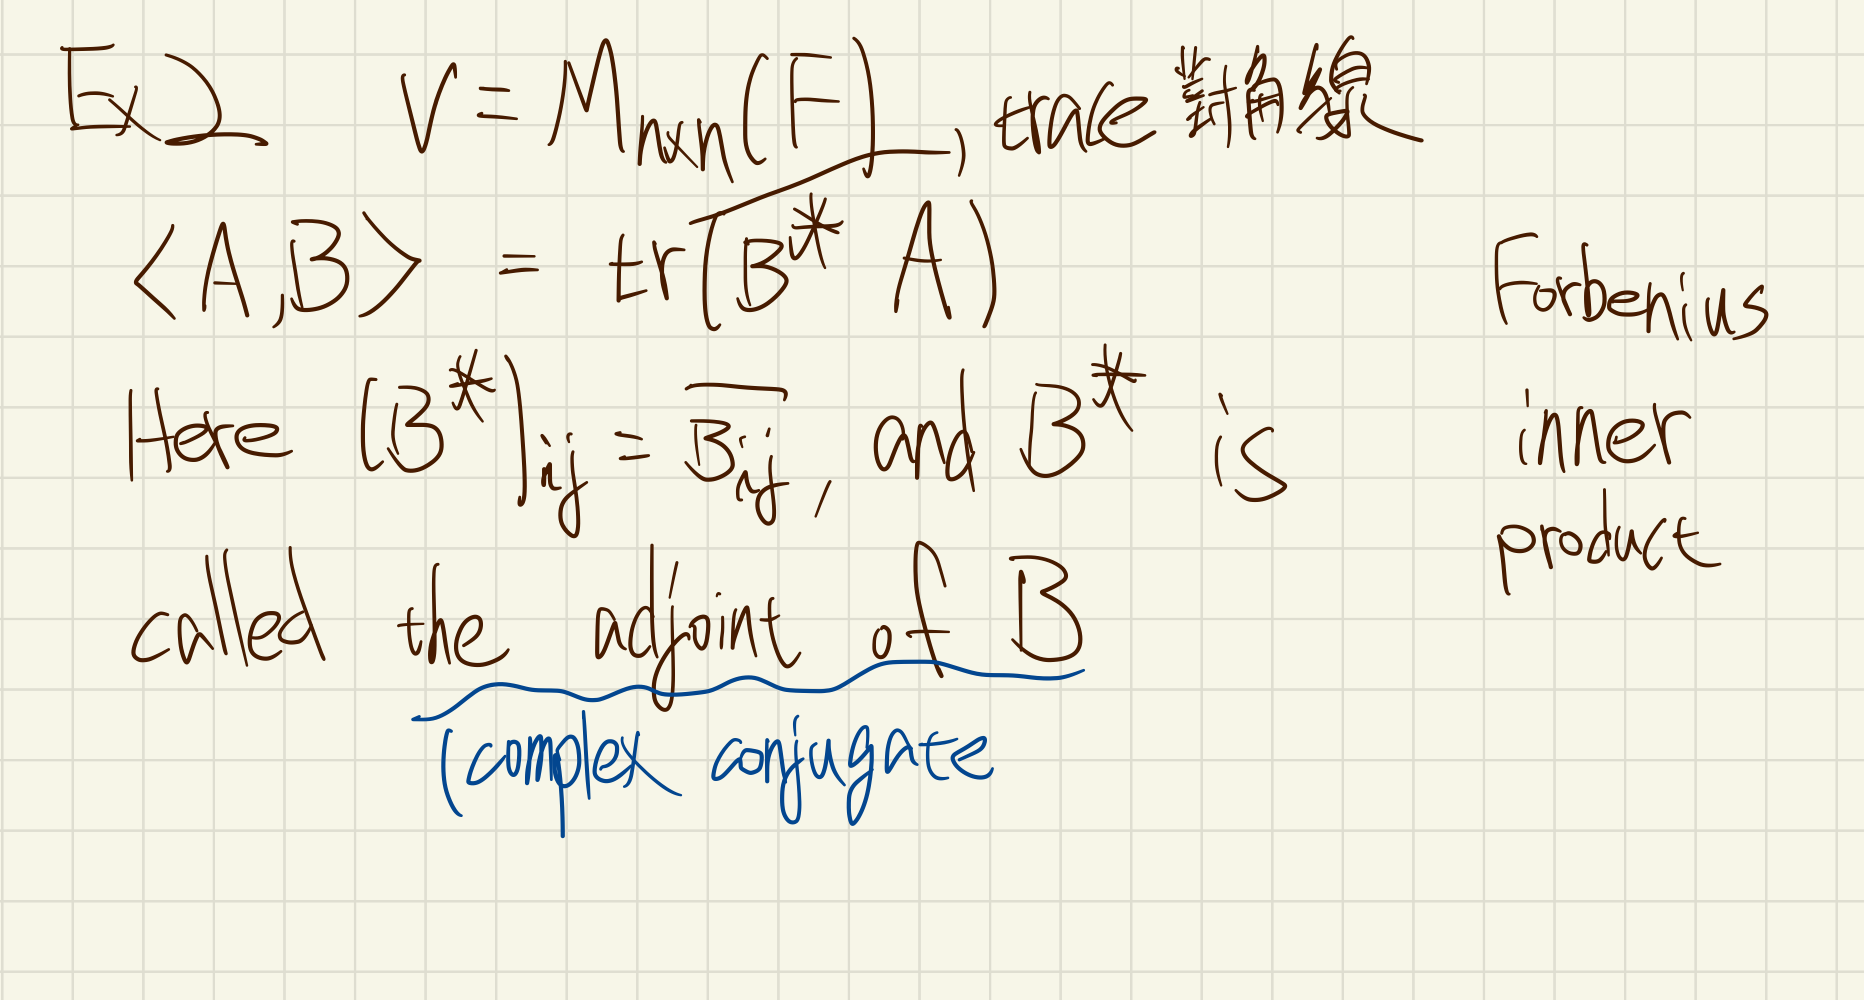 Ex2 V = Mn×n(F), trace 對角線
<A,B> = tr(B* A)
Here (B*)ij = B̅i̅j̅, and B* is
called the adjoint of B
(complex conjugate
Forbenius
inner
product